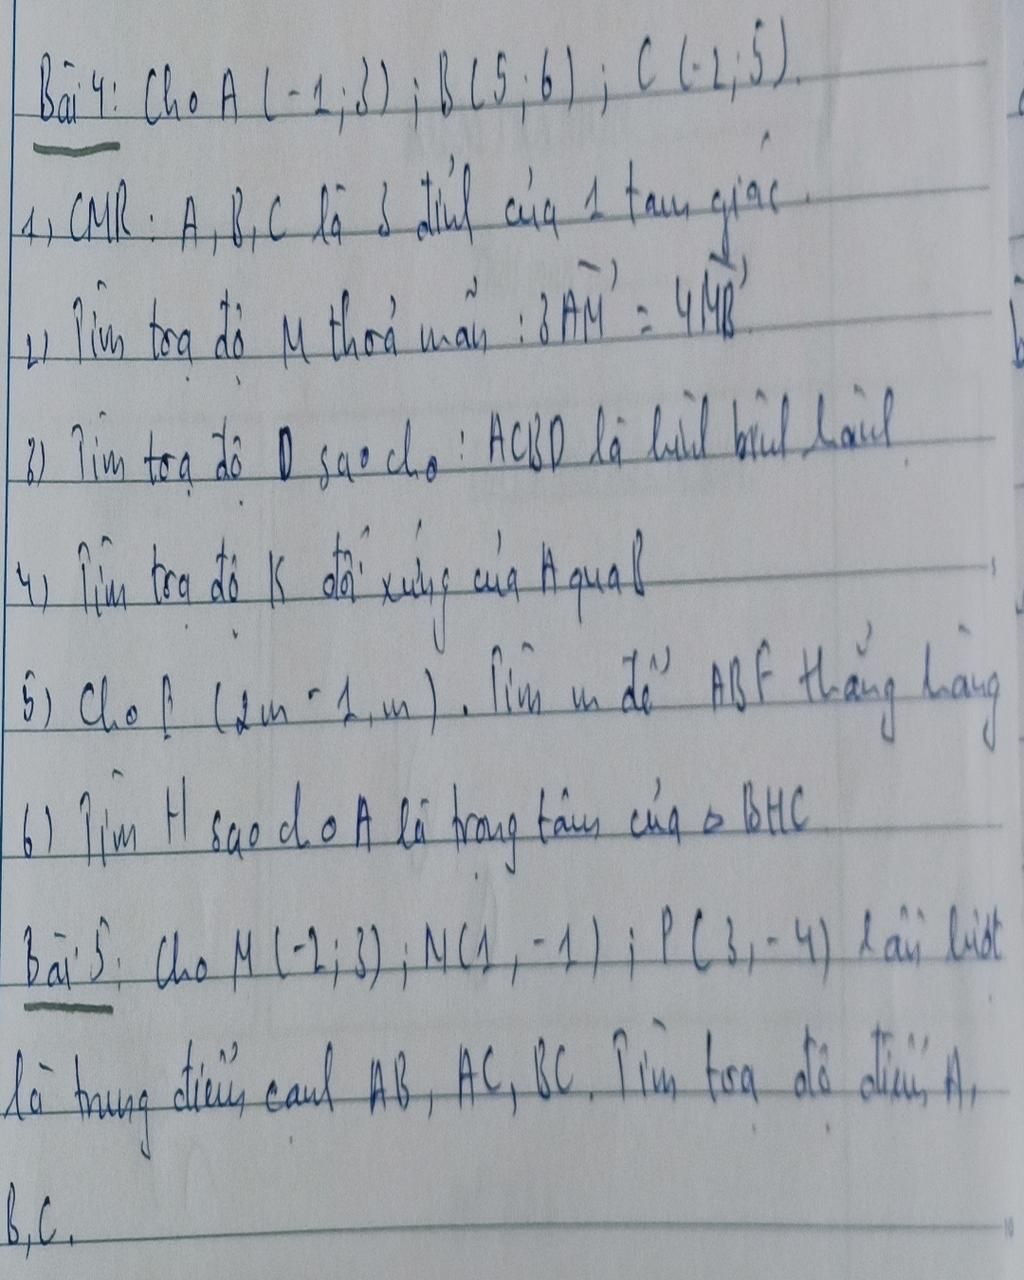 Bài 4: Cho A (-1;3) ; B(5;6) ; C (-2;5).
1, CMR: A, B, C là 3 đỉnh của 1 tam giác.
2) Tìm toạ độ M thoả mãn : 3AM = 4MB
3) Tìm toạ độ D sao cho : ACBD là hình bình hành
4) Tìm toạ độ K đối xứng của A qua B
5) Cho F (2m - 1, m). Tìm m để ABF thẳng hàng
6) Tìm H sao cho A là trọng tâm của △ BHC
Bài 5: Cho M (-2;3) ; N(1, -1) ; P(3, -4) lần lượt
là trung điểm cạnh AB, AC, BC. Tìm toạ độ điểm A,
B,C.